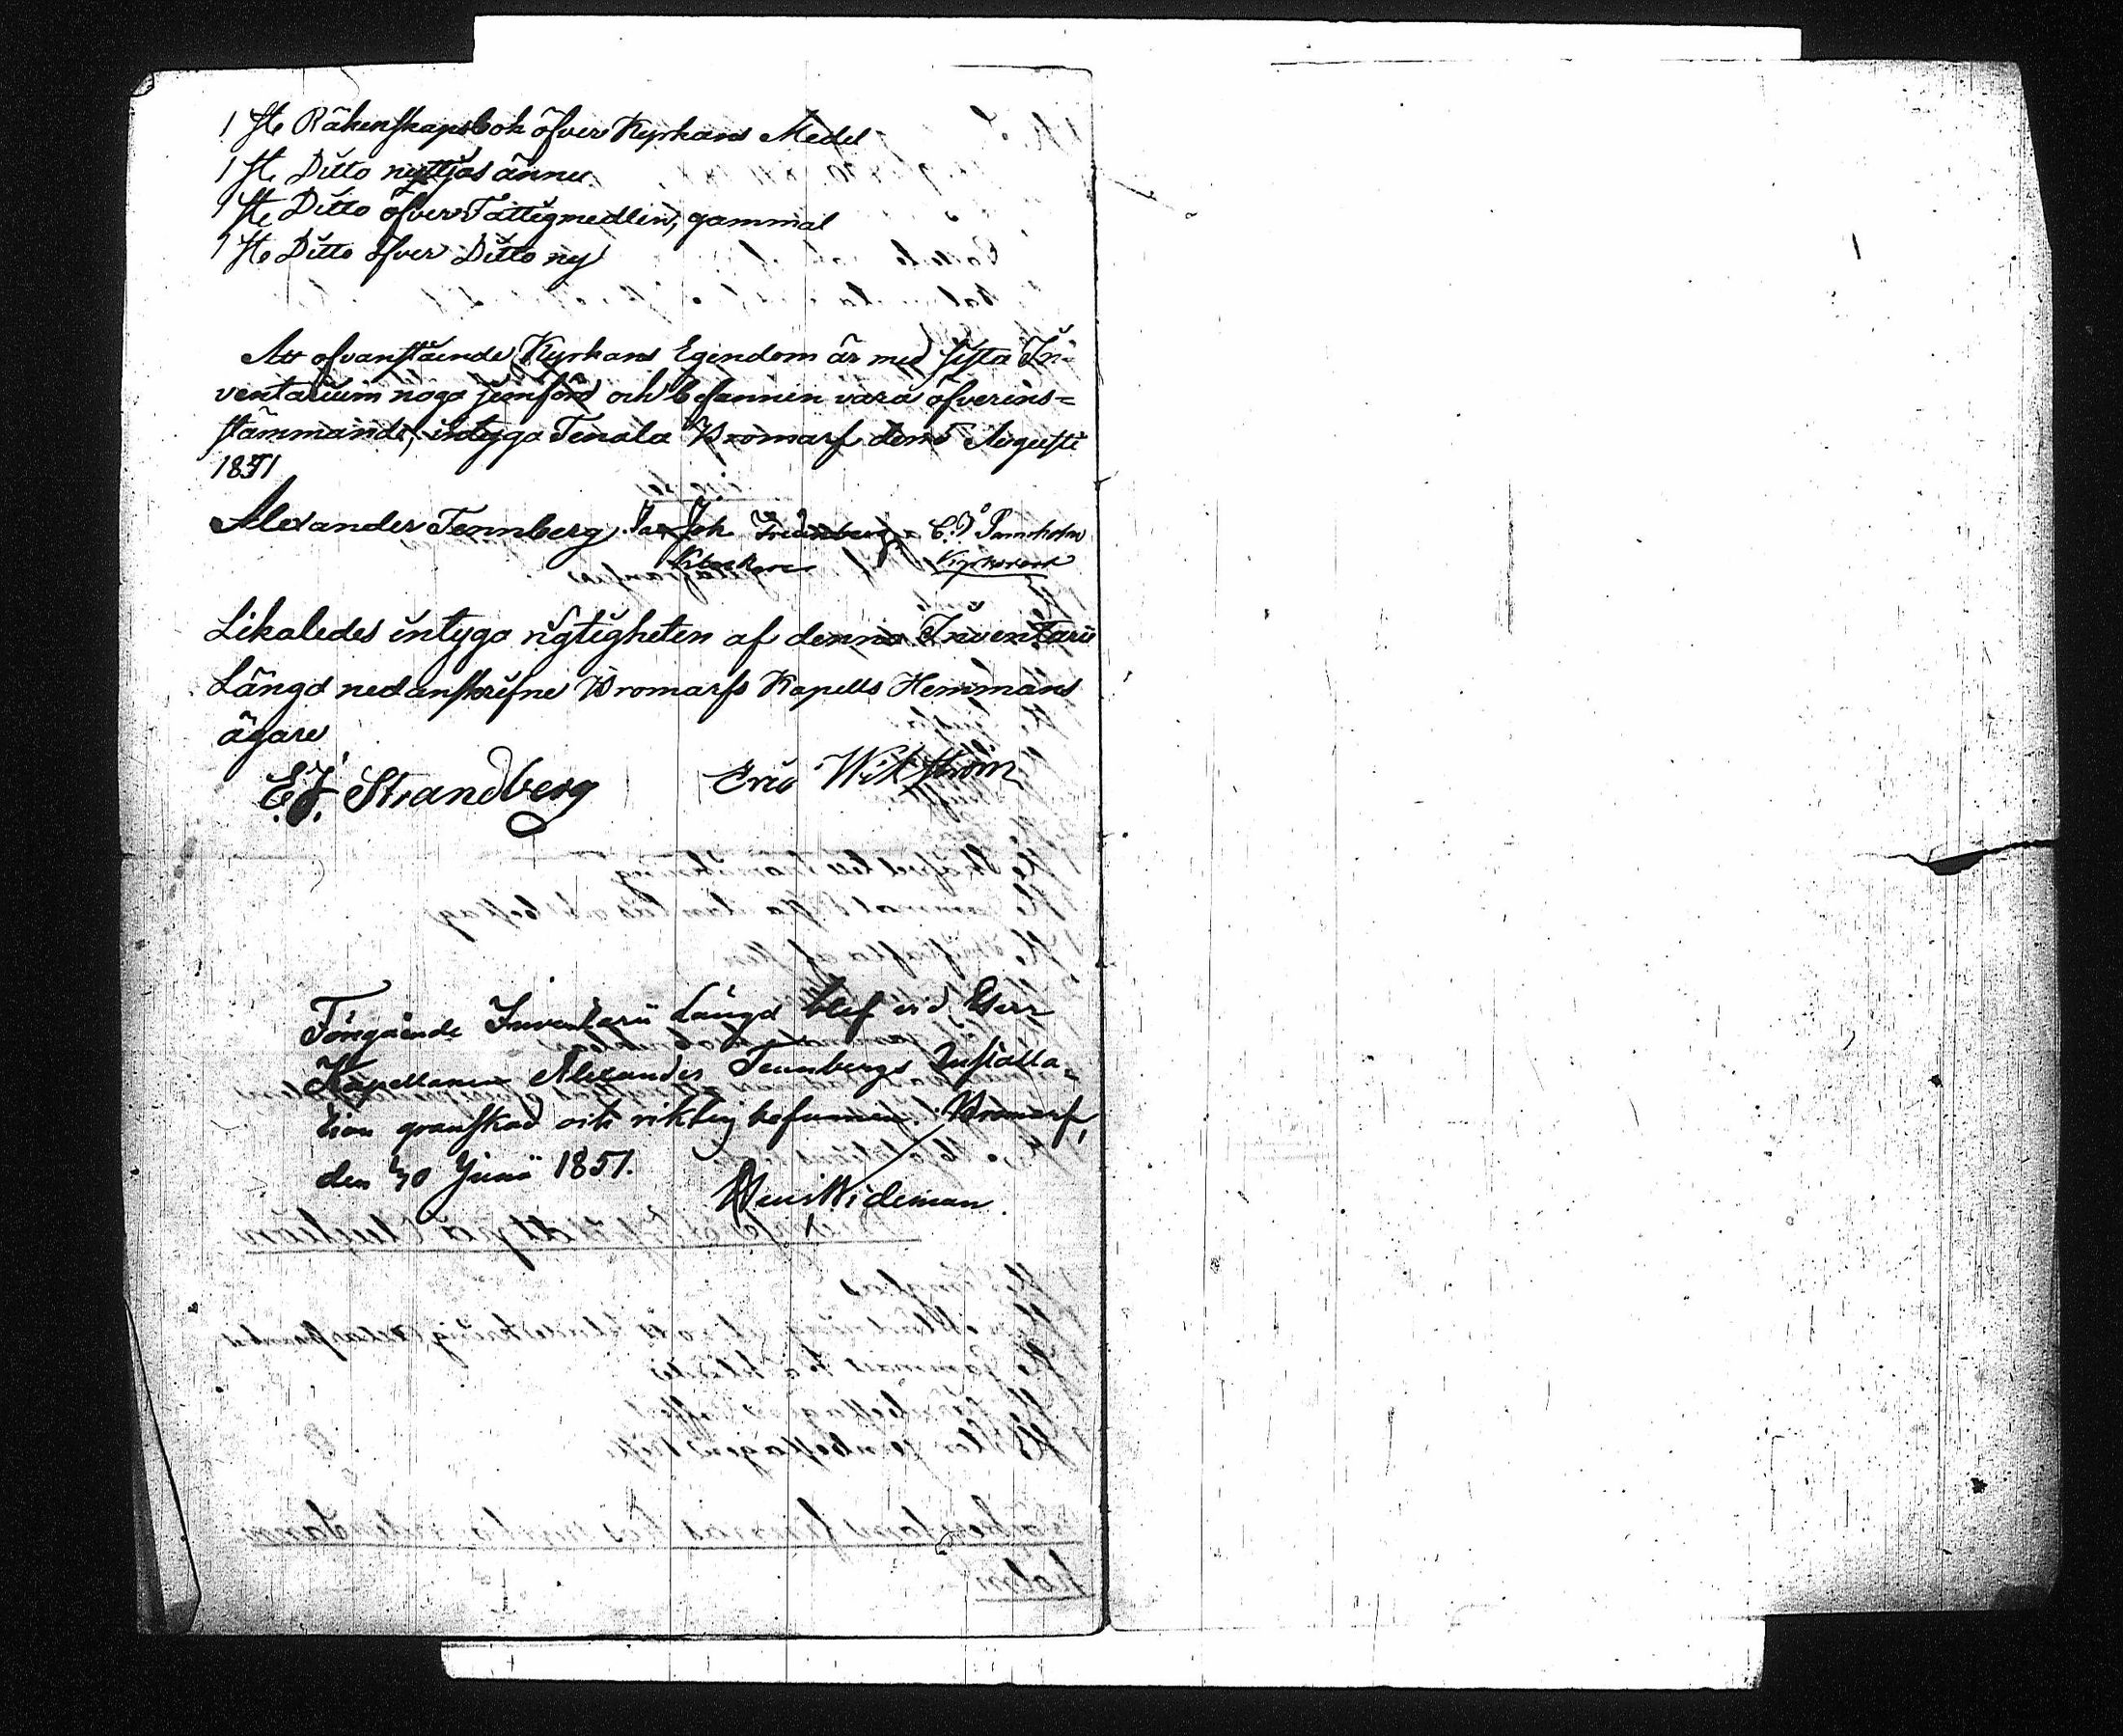 1 St. Räkenskapsbok öfver Kyrkans Medel
1 St. Ditto nyttjas ännu
1 St. Ditto öfver Fattigmedlen, gammal
1 St. Ditto öfver Ditto ny
Att ofvanstående Kyrkans Egendom är med sista In-
ventarium noga jemförd och befunnen vara öfverens=
stämmande, intyga Tenala Bromarf den 5 Augusti
1851
Alexander Tennberg. Joh
Klockare Kyrkovärd
Likaledes intyga rigtigheten af denna Inventarii
Längd nedanskrifne Bromarfs Kapells Hemmans
ägare
E.J. Strandberg Eric Wikström
Föregående Inventarii Längd blef vid Herr
Kapellanen Alexander Tennbergs Installa=
tion granskad och riktig befunnen. Bromarf,
den 30 Junii 1851.
Wideman.